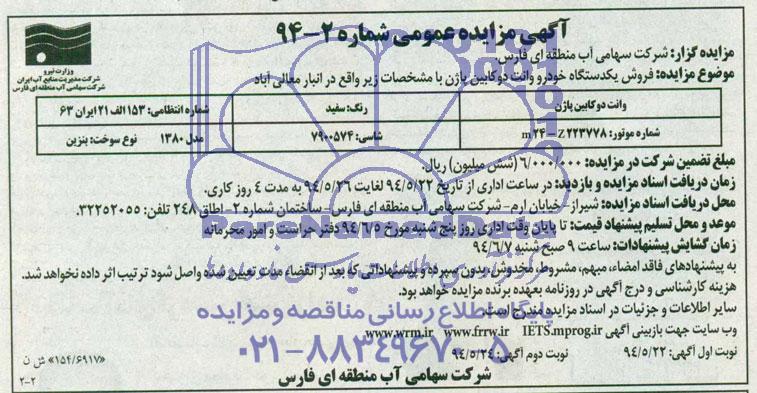 آگهی مزایده عمومی شماره ۲-۹۴
وزارت نیرو
شرکت مدیریت منابع آب ایران
شرکت سهامی آب منطقه ای فارس
مزایده گزار: شرکت سهامی آب منطقه ای فارس.
موضوع مزایده: فروش یکدستگاه خودرو وانت دوکابین پاژن با مشخصات زیر واقع در انبار معالی آباد
وانت دوکابین پاژن رنگ: سفید شماره انتظامی: ۱۵۳ الف ۲۱ ایران ۶۳
شماره موتور: m۲۴-Z۲۲۳۷۷۸ شاسی: ۷۹۰۰۵۷۴ مدل ۱۳۸۰ نوع سوخت: بنزین
مبلغ تضمین شرکت در مزایده: ۶/۰۰۰/۰۰۰ (شش میلیون) ریال.
زمان دریافت اسناد مزایده و بازدید: در ساعت اداری از تاریخ ۹۴/۵/۲۲ لغایت ۹۴/۵/۲۶ به مدت ۴ روز کاری.
محل دریافت اسناد مزایده: شیراز-خیابان ارم-شرکت سهامی آب منطقه ای فارس-ساختمان شماره ۲-اطاق ۲۴۸ تلفن: ۳۲۲۵۲۰۵۵.
موعد و محل تسلیم پیشنهاد قیمت: تا پایان وقت اداری روز پنج شنبه مورخ ۹۴/۶/۵ دفتر حراست و امور محرمانه
زمان گشایش پیشنهادات: ساعت ۹ صبح شنبه ۹۴/۶/۷
به پیشنهادهای فاقد امضاء، مبهم، مشروط، مخدوش، بدون سپرده و پیشنهاداتی که بعد از انقضاء مدت تعیین شده واصل شود ترتیب اثر داده نخواهد شد.
هزینه کارشناسی و درج آگهی در روزنامه بعهده برنده مزایده خواهد بود.
سایر اطلاعات و جزئیات در اسناد مزایده مندرج است.
پایگاه اطلاع رسانی مناقصه و مزایده
وب سایت جهت بازبینی آگهی www.wrm.ir www.frrw.ir IETS.mprog.ir
۰۲۱-۸۸۳۴۹۶۷۰-۵
نوبت اول آگهی: ۹۴/۵/۲۲ نوبت دوم آگهی: ۹۴/۵/۲۴ «۱۵۴/۶۹۱۷» ش ن
شرکت سهامی آب منطقه ای فارس
۲-۲